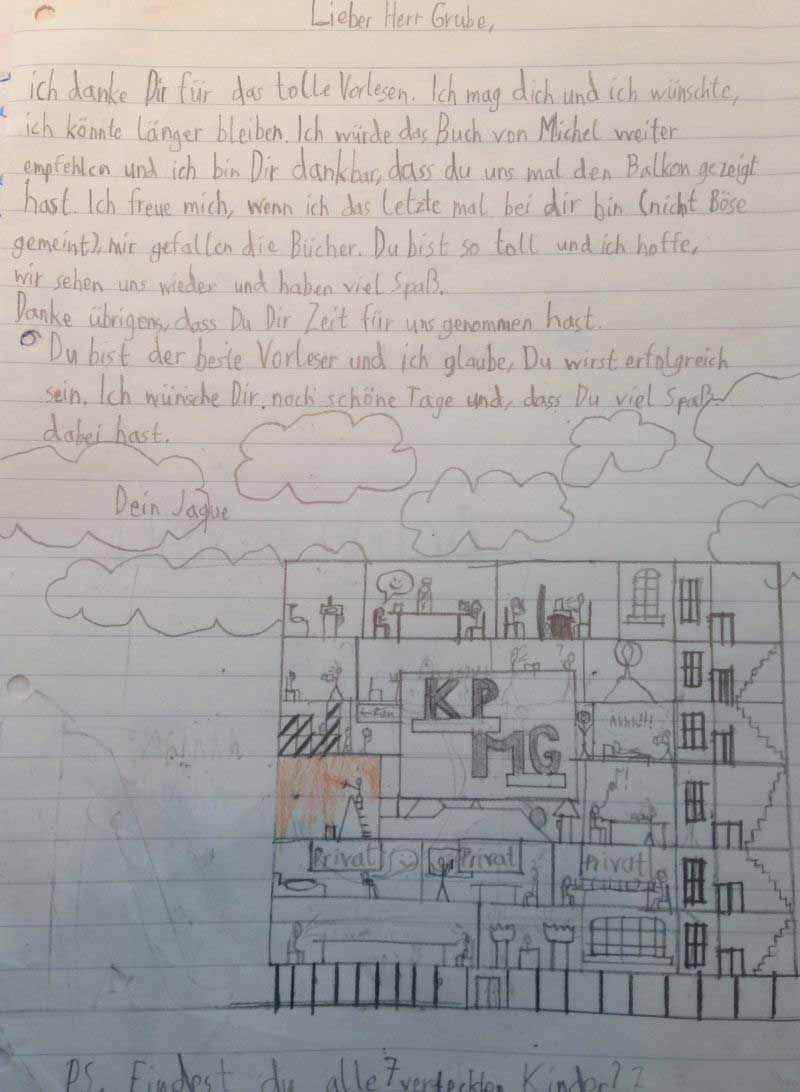 Lieber Herr Grube,
ich danke Dir für das tolle Vorlesen. Ich mag dich und ich wünschte,
ich könnte länger bleiben. Ich würde das Buch von Michel weiter
empfehlen und ich bin Dir dankbar, dass du uns mal den Balkon gezeigt
hast. Ich freue mich, wenn ich das letzte mal bei dir bin (nicht Böse
gemeint), mir gefallen die Bücher. Du bist so toll und ich hoffe,
wir sehen uns wieder und haben viel Spaß.
Danke übrigens, dass Du Dir Zeit für uns genommen hast.
Du bist der beste Vorleser und ich glaube, Du wirst erfolgreich
sein. Ich wünsche Dir, noch schöne Tage und, dass Du viel Spaß
dabei hast.
Dein Jaque
KP
MG
Privat
Privat
Privat
PS. Findest du alle 7 versteckten Kinder??